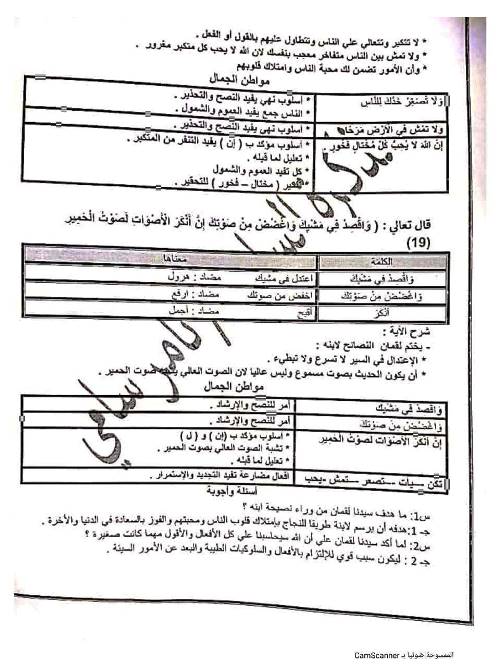 * لا تتكبر وتتعالي علي الناس وتتطاول عليهم بالقول أو الفعل .
* ولا تمش بين الناس متفاخر معجب بنفسك لان الله لا يحب كل متكبر مغرور .
* وأن الأمور تضمن لك محبة الناس وامتلاك قلوبهم
مواطن الجمال
وَلَا تُصَعِّرْ خَدَّكَ لِلنَّاسِ
* اسلوب نهي يفيد النصح والتحذير .
* الناس جمع يفيد العموم والشمول .
ولا تمش في الأرض مَرَحًا
* اسلوب نهي يفيد النصح والتحذير .
إنَّ الله لَا يُحِبُّ كُلَّ مُخْتَالٍ فَخُورٍ .
* اسلوب مؤكد ب ( إن ) يفيد التنفر من المتكبر .
* تعليل لما قبله .
* كل تفيد العموم والشمول
( مختال – فخور ) للتحقير .
قال تعالي : ( وَاقْصِدْ فِي مَشْيِكَ وَاغْضُضْ مِنْ صَوْتِكَ إِنَّ أَنْكَرَ الْأَصْوَاتِ لَصَوْتُ الْحَمِيرِ
(19)
الكلمة معناها
وَاقْصِدْ فِي مَشْيِكَ اعتدل في مشيك مضاد : هرول
وَاغْضُضْ مِنْ صَوْتِكَ اخفض من صوتك مضاد : ارفع
أنكَرَ أقبح مضاد : أجمل
شرح الأية :
- يختم لقمان النصائح لابنه :
* الإعتدال في السير لا تسرع ولا تبطيء .
* أن يكون الحديث بصوت مسموع وليس عاليا لان الصوت العالي صوت الحمير .
مواطن الجمال
وَاقْصِدْ فِي مَشْيِكَ أمر للنصح والإرشاد .
وَاغْضُضْ مِنْ صَوْتِكَ أمر للنصح والإرشاد .
إِنَّ أَنْكَرَ الْأَصْوَاتِ لَصَوْتُ الْحَمِيرِ
* اسلوب مؤكد ب (إن) و ( ل )
* تشبة الصوت العالي بصوت الحمير .
* تعليل لما قبله .
تكن – يات – تصعر – تمش - يحب أفعال مضارعة تفيد التجديد والإستمرار .
أسئلة وأجوبة
س1: ما هدف سيدنا لقمان من وراء نصيحة ابنه ؟
جـ 1:هدفه أن يرسم لابنة طريقا للنجاح بإمتلاك قلوب الناس ومحبتهم والفوز بالسعادة في الدنيا والأخرة .
س2: لما أكد سيدنا لقمان علي أن الله سيحاسبنا علي كل الأفعال والأقول مهما كانت صغيرة ؟
جـ 2: ليكون سبب قوي للإلتزام بالأفعال والسلوكيات الطيبة والبعد عن الأمور السيئة .
الممسوحة ضوئيا بـ CamScanner